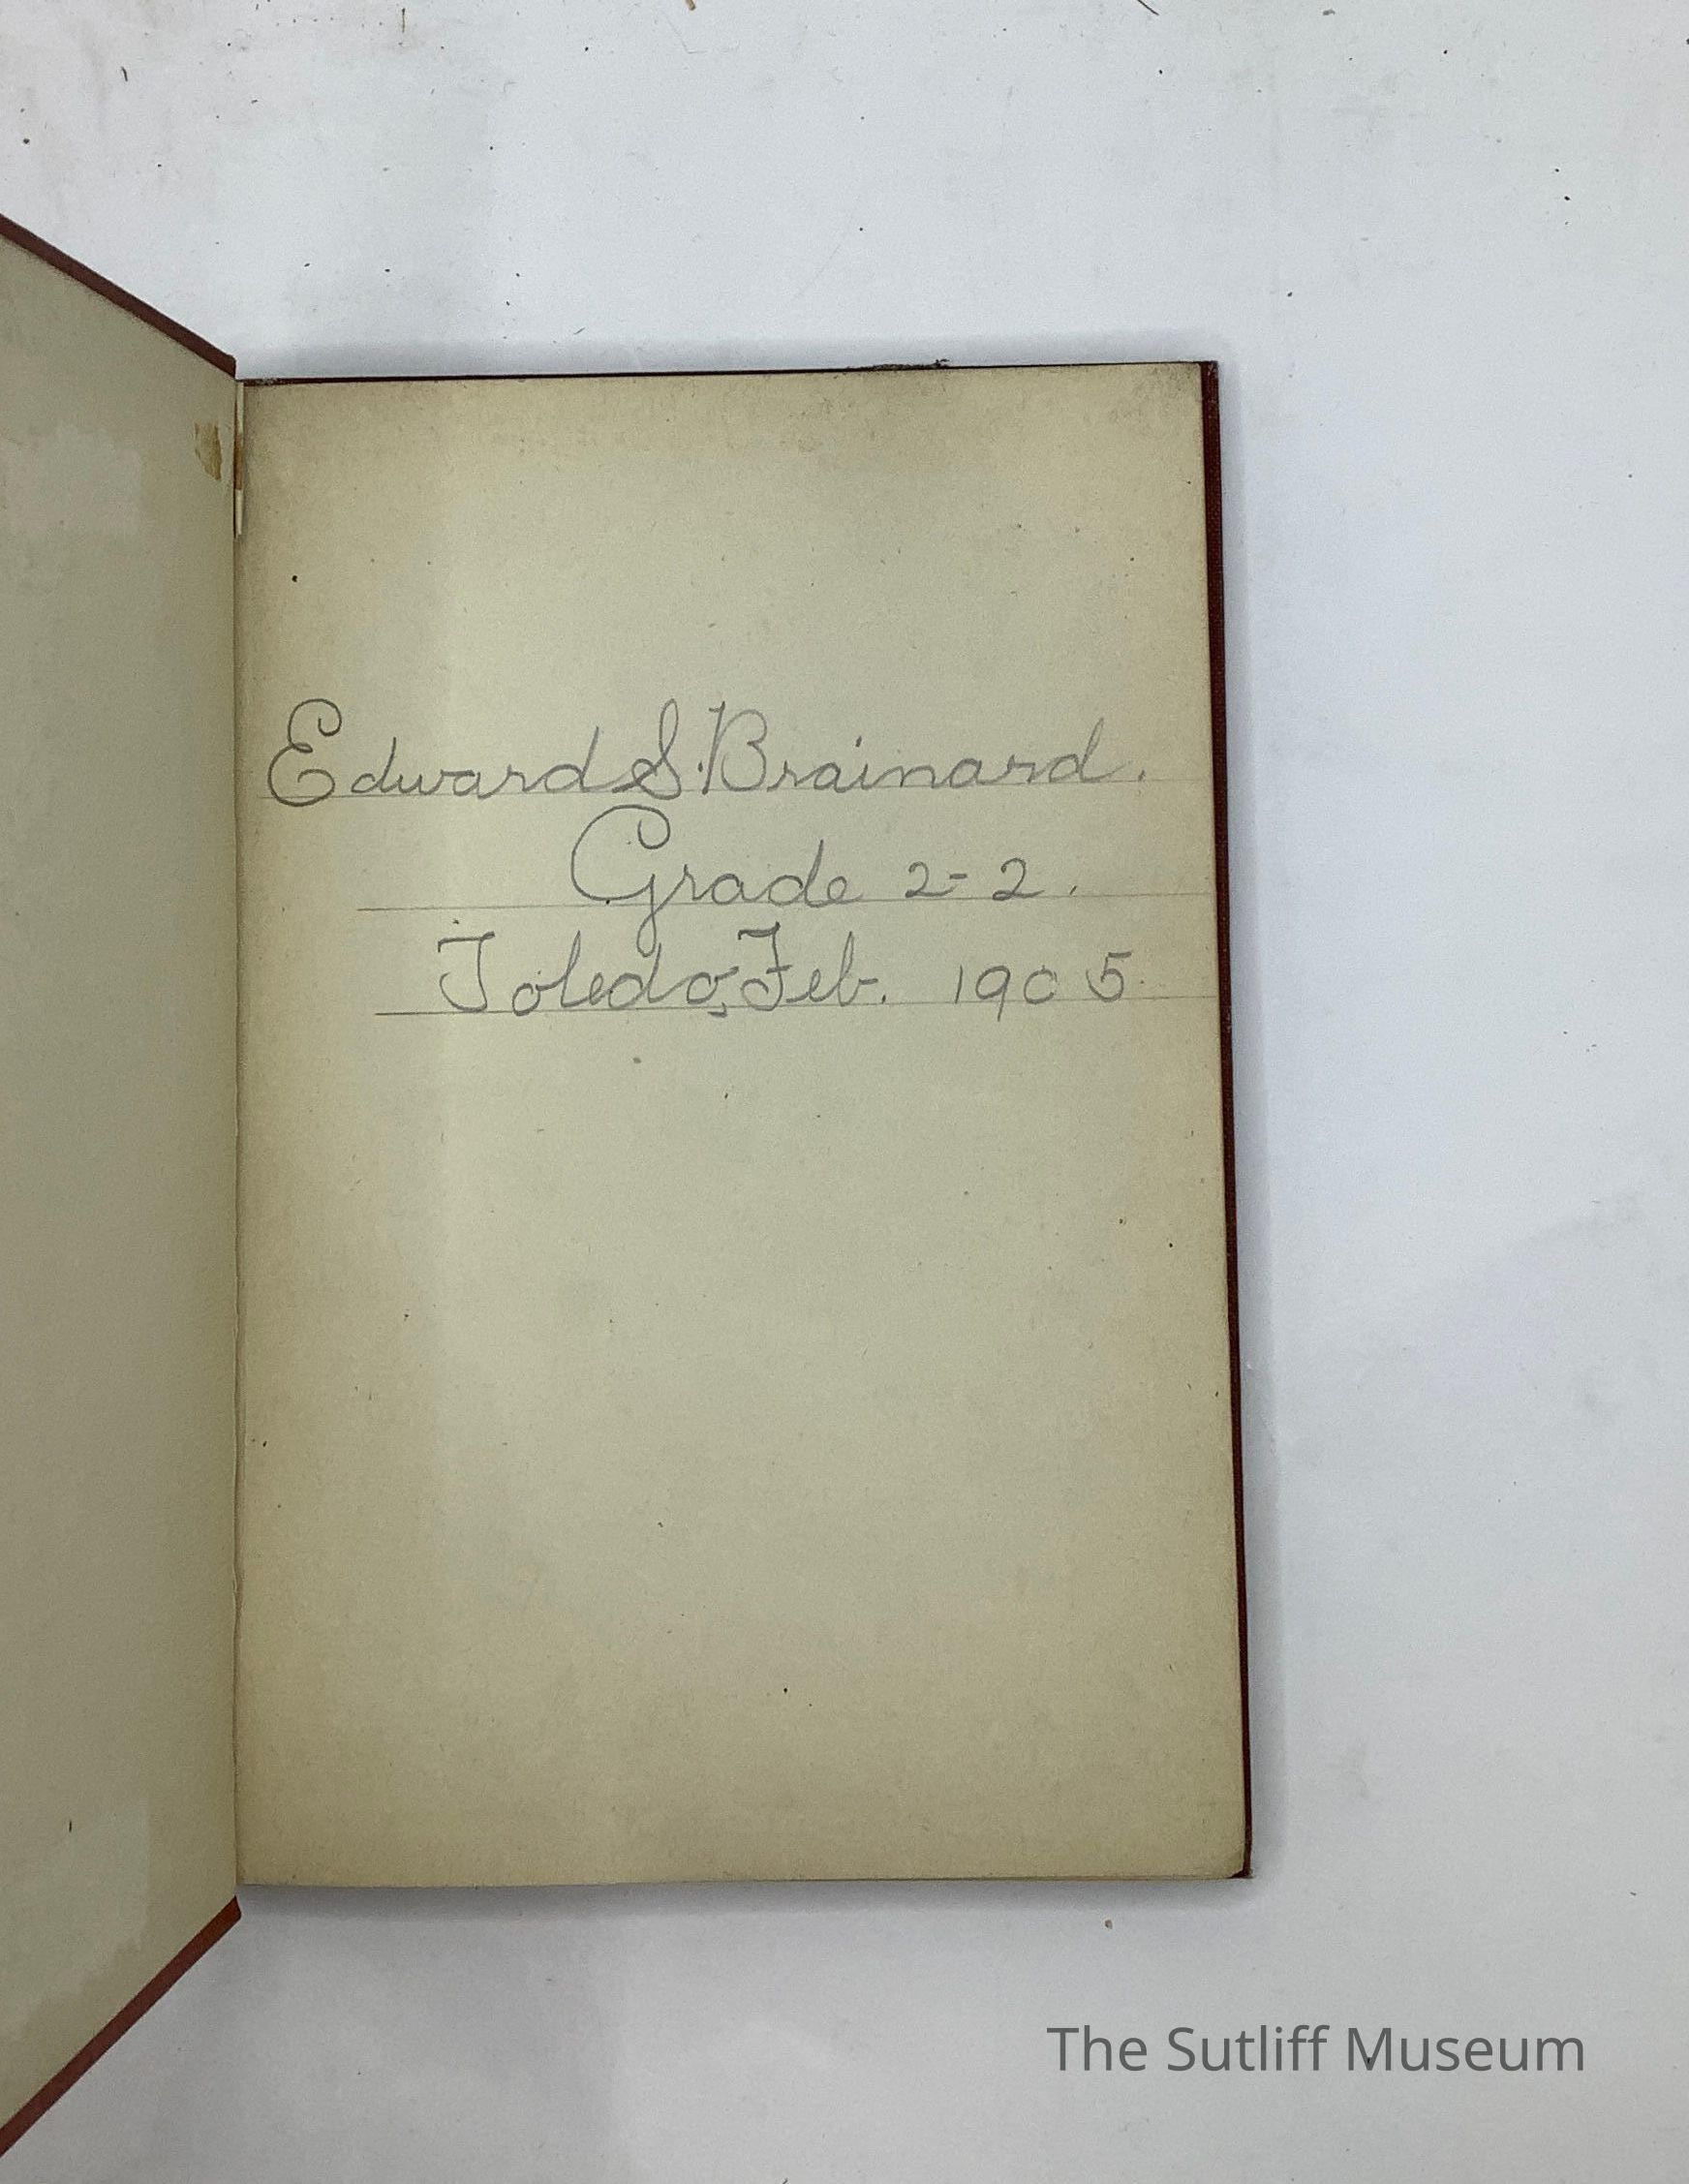 Edward S. Brainard.
Grade 2-2.
Toledo, Feb. 1905.
The Sutliff Museum